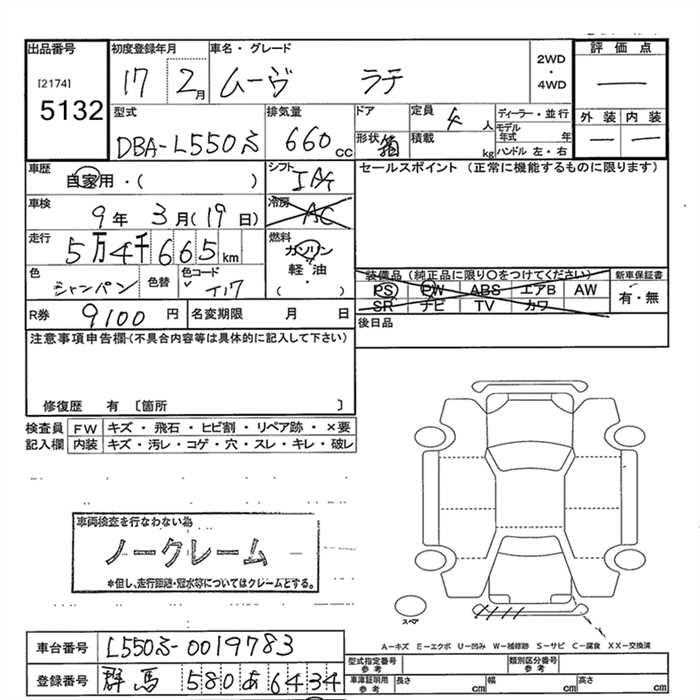 出品番号 初度登録年月 車名・グレード 2WD・4WD 評価点
[2174] 5132 17 2月 ムーヴ ラテ —
型式 排気量 ドア 定員 4人 ディーラー・並行 外装 内装
DBA-L550S 660cc 形状 箱 積載 kg モデル年式 年 ハンドル 左・右 — —
車歴 自家用・( ) シフト IAT セールスポイント (正常に機能するものに限ります)
車検 9年 3月(19日) 冷房 AC
走行 5万4千665km 燃料 ガソリン 軽油 ・ ( )
色 シャンパン 色替 色コード T17
装備品(純正品に限り○をつけてください) 新車保証書
PS PW ABS エアB AW 有・無
SR ナビ TV カワ
R券 9100円 名変期限 月 日 後日品
注意事項申告欄(不具合内容等は具体的に記入して下さい)
修復歴 有 〔箇所 〕
検査員 FW キズ・飛石・ヒビ割・リペア跡・×要
記入欄 内装 キズ・汚レ・コゲ・穴・スレ・キレ・破レ
車両検査を行なわない為
ノークレーム
*但し、走行距離・冠水等についてはクレームとする。
スペア
A−キズ E−エクボ U−凹み W−補修跡 S−サビ C−腐食 XX−交換済
車台番号 L550S-0019783
登録番号 群馬 580 あ 6434
型式指定番号 参考 類別区分番号 参考
車庫証明用 参考 長さ cm 幅 cm 高さ cm